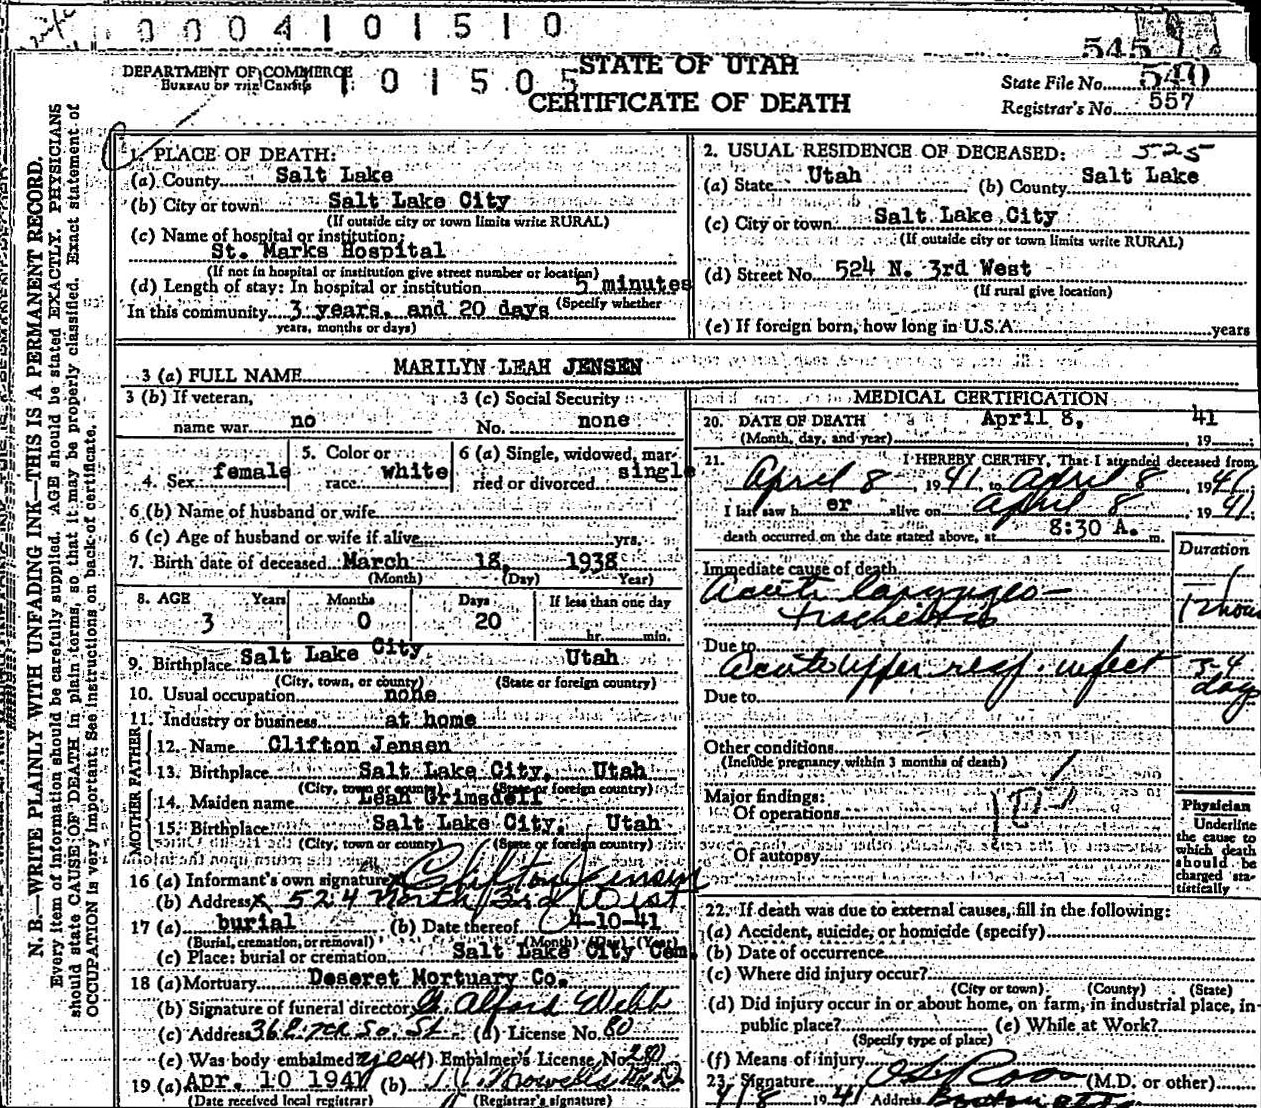 0004101510
545
DEPARTMENT OF COMMERCE
BUREAU OF THE CENSUS
101505
STATE OF UTAH
CERTIFICATE OF DEATH
State File No. 540
Registrar's No. 557
N. B.—WRITE PLAINLY WITH UNFADING INK—THIS IS A PERMANENT RECORD.
Every item of information should be carefully supplied. AGE should be stated EXACTLY. PHYSICIANS
should state CAUSE OF DEATH in plain terms, so that it may be properly classified. Exact statement of
OCCUPATION is very important. See instructions on back of certificate.
1. PLACE OF DEATH:
(a) County Salt Lake
(b) City or town Salt Lake City
(If outside city or town limits write RURAL)
(c) Name of hospital or institution:
St. Marks Hospital
(If not in hospital or institution give street number or location)
(d) Length of stay: In hospital or institution 5 minutes
(Specify whether
In this community 3 years, and 20 days
years, months or days)
2. USUAL RESIDENCE OF DECEASED: 525
(a) State Utah (b) County Salt Lake
(c) City or town Salt Lake City
(If outside city or town limits write RURAL)
(d) Street No. 524 N. 3rd West
(If rural give location)
(e) If foreign born, how long in U.S.A. years
3 (a) FULL NAME MARILYN LEAH JENSEN
3 (b) If veteran, name war no
3 (c) Social Security No. none
4. Sex female
5. Color or race white
6 (a) Single, widowed, married or divorced single
6 (b) Name of husband or wife
6 (c) Age of husband or wife if alive yrs.
7. Birth date of deceased March 18, 1938
(Month) (Day) Year)
8. AGE Years Months Days If less than one day
3 0 20 hr. min.
9. Birthplace Salt Lake City Utah
(City, town, or county) (State or foreign country)
10. Usual occupation none
11. Industry or business at home
FATHER
12. Name Clifton Jensen
13. Birthplace Salt Lake City, Utah
(City, town or county) (State or foreign country)
MOTHER
14. Maiden name Leah Grimsdell
15. Birthplace Salt Lake City, Utah
(City, town or county) (State or foreign country)
16 (a) Informant's own signature Clifton Jensen
(b) Address 524 North 3rd West
17 (a) burial (b) Date thereof 4-10-41
(Burial, cremation, or removal) (Month) (Day) (Year)
(c) Place: burial or cremation Salt Lake City Cem.
18 (a) Mortuary Deseret Mortuary Co.
(b) Signature of funeral director G. Alford Webb
(c) Address 36 E. 7th So. St. (d) License No. 80
(e) Was body embalmed? yes (f) Embalmer's License No.
19 (a) Apr. 10 1941 (b)
(Date received local registrar) (Registrar's signature)
MEDICAL CERTIFICATION
20. DATE OF DEATH April 8, 1941
(Month, day, and year)
21. I HEREBY CERTIFY, That I attended deceased from
April 8 1941 to April 8 1941
I last saw her alive on April 8 1941
death occurred on the date stated above, at 8:30 A. m.
Duration
Immediate cause of death
Acute laryngeo-
tracheitis
12 hours
Due to
Acute upper resp. infect
3-4 days
Due to
Other conditions
(Include pregnancy within 3 months of death)
Major findings:
Of operations
Of autopsy
Physician
Underline
the cause to
which death
should be
charged sta-
tistically
22. If death was due to external causes, fill in the following:
(a) Accident, suicide, or homicide (specify)
(b) Date of occurrence
(c) Where did injury occur?
(City or town) (County) (State)
(d) Did injury occur in or about home, on farm, in industrial place, in
public place? (e) While at Work?
(Specify type of place)
(f) Means of injury
23. Signature (M.D. or other)
4/8 1941 Address